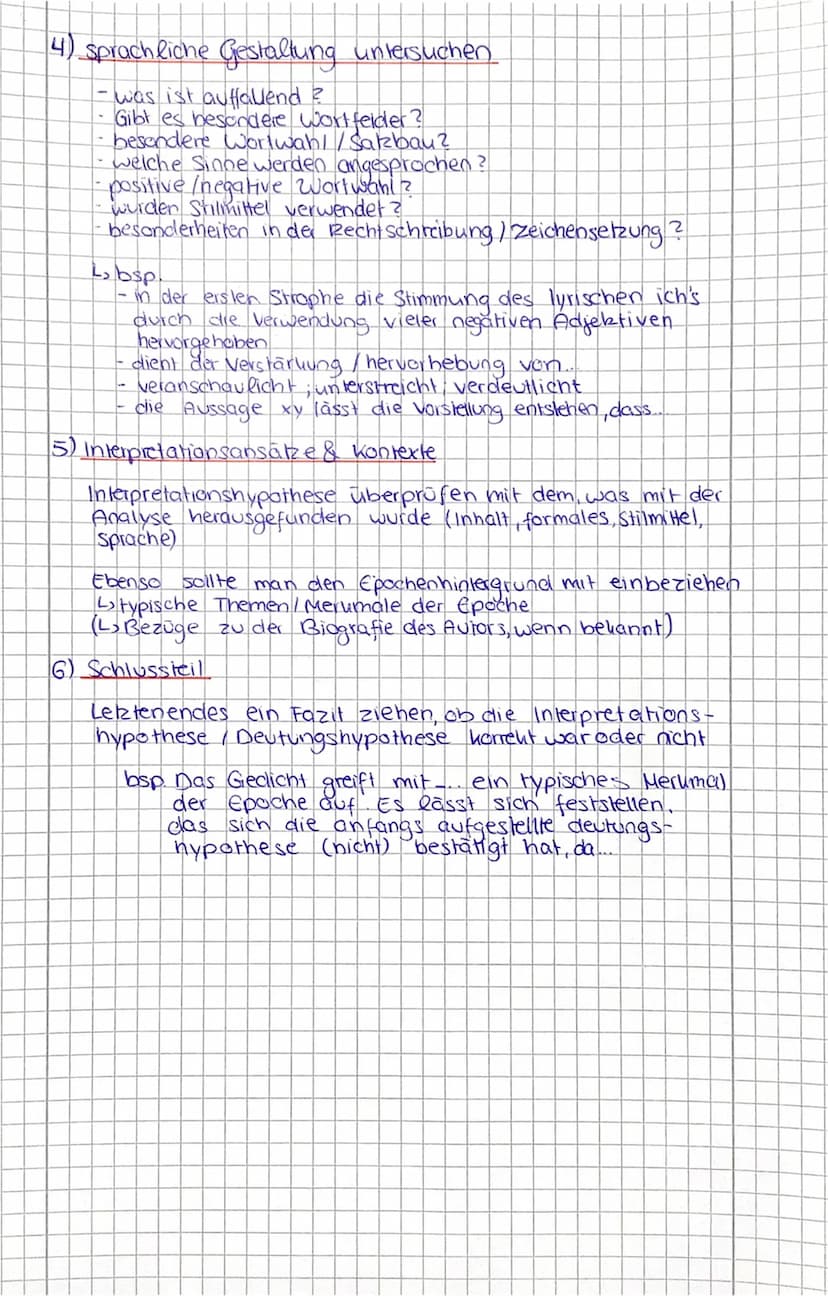 4) sprachliche Gestaltung untersuchen
- was ist auffallend?
- Gibt es besondere Wortfelder?
- besondere Wortwahl / Satzbau?
- welche Sinne werden angesprochen?
- positive / negative Wortwahl?
- wurden Stilmittel verwendet?
- besonderheiten in der Rechtschreibung / Zeichensetzung?
↳ bsp.
- in der ersten Strophe die Stimmung des lyrischen ich's
durch die Verwendung vieler negativen Adjektiven
hervorgehoben
- dient der Verstärkung / hervorhebung von...
- veranschaulicht ; unterstreicht ; verdeutlicht
- die Aussage xy lässt die Vorstellung entstehen, dass...
5) Interpretationsansätze & Kontexte
Interpretationshypothese überprüfen mit dem, was mit der
Analyse herausgefunden wurde (Inhalt, formales, Stilmittel,
Sprache)
Ebenso sollte man den Epochenhintergrund mit einbeziehen
↳ typische Themen / Merkmale der Epoche
(↳ Bezüge zu der Biografie des Autors, wenn bekannt)
6) Schlussteil
Letztenendes ein Fazit ziehen, ob die Interpretations-
hypothese / Deutungshypothese korrekt war oder nicht
bsp. Das Gedicht greift mit ... ein typisches Merkmal
der Epoche auf. Es lässt sich feststellen,
das sich die anfangs aufgestellte deutungs-
hypothese (nicht) bestätigt hat, da...